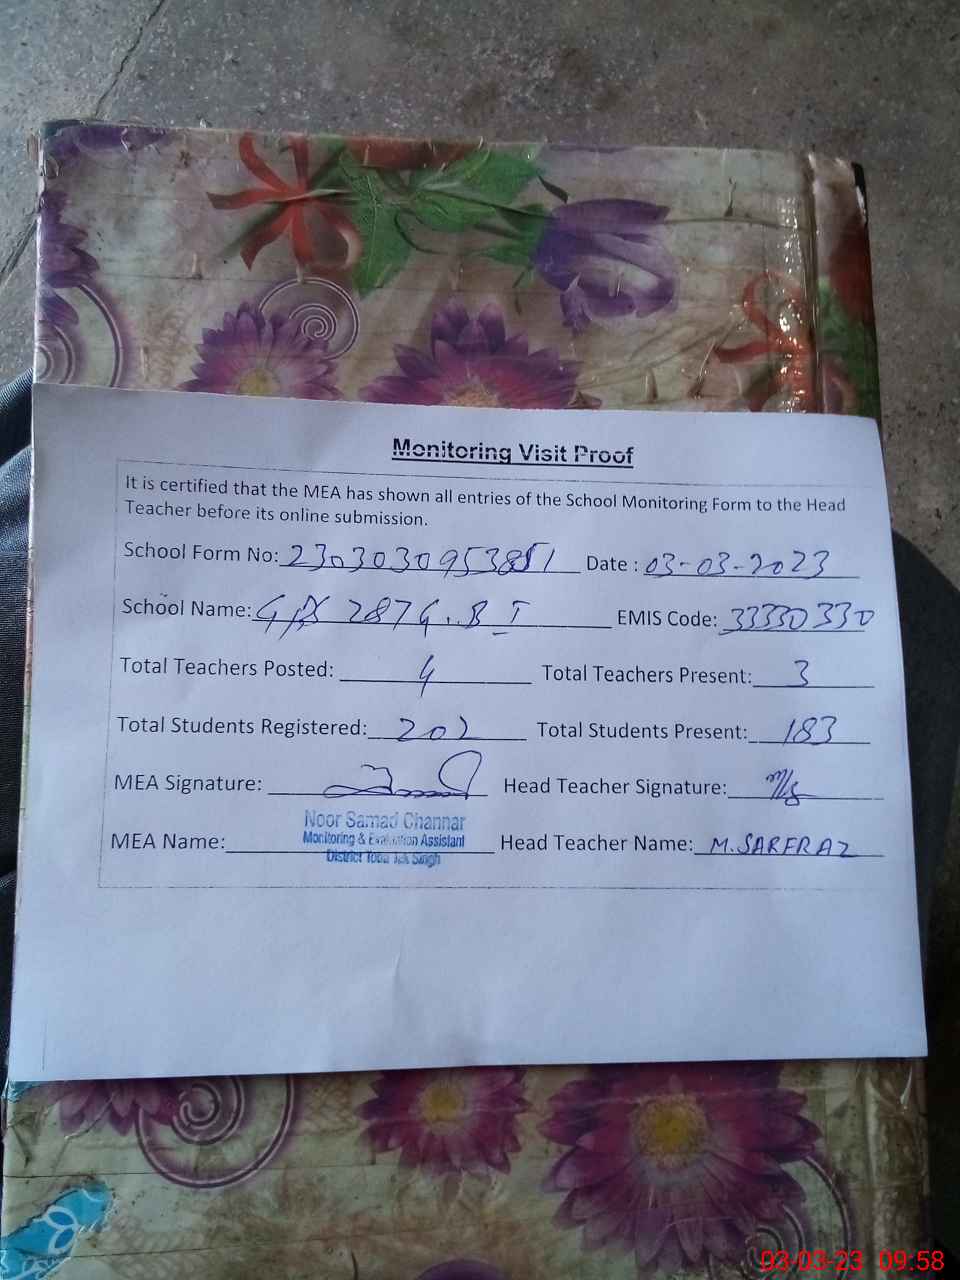 Monitoring Visit Proof
It is certified that the MEA has shown all entries of the School Monitoring Form to the Head
Teacher before its online submission.
School Form No: 2303030953851 Date : 03-03-2023
School Name: GPS 287 G.B I EMIS Code: 33330330
Total Teachers Posted: 4 Total Teachers Present: 3
Total Students Registered: 202 Total Students Present: 183
MEA Signature: Head Teacher Signature:
Noor Samad Channar
Monitoring & Evaluation Assistant
MEA Name: Head Teacher Name: M. SARFRAZ
District Toba Tek Singh
03-03-23 09:58